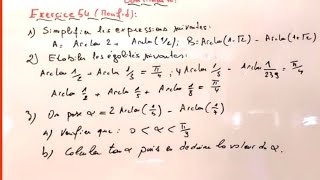 Exercice 54 (Manfid):
1) Simplifier les expressions suivantes:
A = Arctan 2 + Arctan(1/2); B = Arctan(1-√2) - Arctan(1+√2)
2) Etablir les égalités suivantes:
Arctan 1/2 + Arctan 1/3 = π/4; 4 Arctan 1/5 - Arctan 1/239 = π/4
Arctan 1/2 + Arctan 1/5 + Arctan 1/8 = π/4
3) On pose α = 2 Arctan(1/4) - Arctan(1/7)
a) Vérifier que: 0 < α < π/3
b) Calculer tan α puis en déduire la valeur de α.